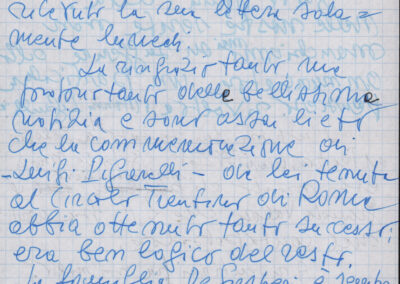 ricevuto la sua lettera sola=
mente lunedì.
La ringrazio tanto, ma
proprio tanto delle bellissime
notizie e sono assai lieto
che la commemorazione di
- Luigi Pigarelli - da lei tenuta
al Circolo Trentino di Roma
abbia ottenuto tanto successo;
era ben logico del resto.
La famiglia De Gasperi è sempre